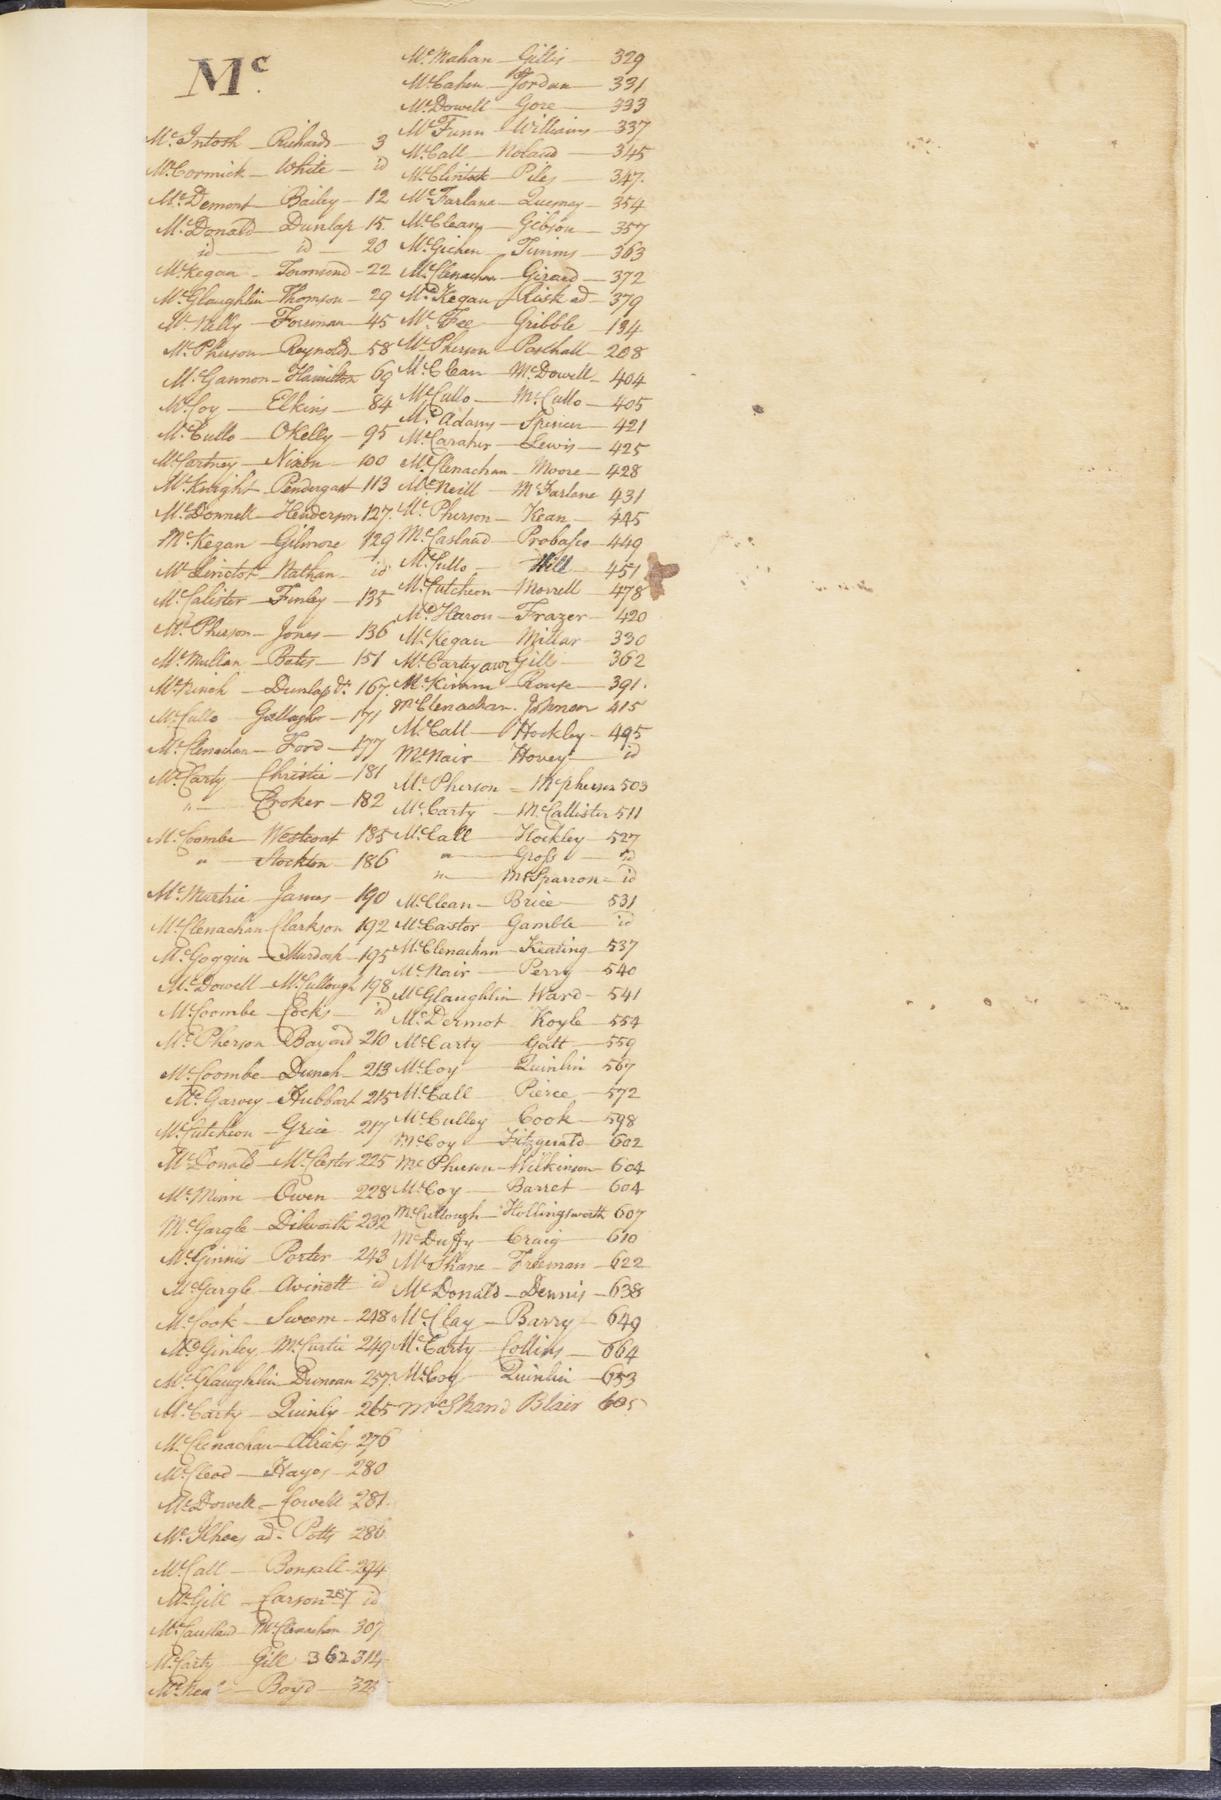 Mc.
McIntosh — Richards — 3
McCormick — White — id
McDemont — Bailey — 12
McDonald — Dunlap 15
id — id — 20
McKegan — Townsend — 22
McGlaughlin — Thomson — 29
McNally — Foreman — 45
McPherson — Reynolds — 58
McGannon — Hamilton 69
McCoy — Elkins — 84
McCullo — OKelly — 95
McCartney — Nixon — 100
McKnight — Pendergast 113
McDonnell — Henderson 127
McKegan — Gilmore 129
Nathan — id
McCalister — Finley — 135
McPherson — Jones — 136
McMullan — Bates — 151
McNinch — Dunlap Dr. 167
McCullo Gallagher — 171
McClenachan — Ford — 177
McCarty — Christie — 181
" — Croker — 182
McCoombe — Westcoat 185
" — Stockton — 186
McMurtrie — James — 190
McClenachan Clarkson 192
McGoggin — Murdoch — 195
McDowell — McCullough 198
McCoombe — Cocks — id
McPherson Bayard 210
McCoombe — Dunah — 213
McGarvey — Hubbart 215
McCutcheon — Grice 217
McDonald — McClestor 225
McMinn — Owen — 228
McGargle — Dilworth 232
McGinnis — Porter — 243
McGargle — Avinett id
McCook — Sweem — 248
McGinley McCurtie 249
McGlaughlin Duncan 257
McCarty — Quinly — 265
McClenachan — Alricks 276
McCleod — Hayes — 280
McDowell — Cowell 281
ad. Potts 286
McCall — Bonsall — 294
McGill — Carson 287 id
McCausland McClenachan 307
McCarty Gill 362 314
McNeal — Boyd — 32
McMahan — Gillis — 329
McCahen — Jordan — 331
McDowell — Gore — 333
McFunn — Williams — 337
McCall — Noland — 345
McClintock — Piles — 347
McFarlane — Quemey — 354
McClean — Gibson — 357
McGichen — Timms — 363
McClenachan — Girard — 372
McKegan Risk ad — 379
McFee — Gribble — 134
McPherson — Paschall — 208
McClean — McDowell — 404
McCullo — McCullo — 405
McAdams — Spencer — 421
McCaraher — Lewis — 425
McClenachan — Moore — 428
McNeill — McFarlane 431
McPherson — Kean — 445
McCasland — Probasco — 449
McCullo — Will — 451
McCutcheon — Morrell — 478
McHaron — Frazer — 420
McKegan — Millar — 330
McCarty Gill — 362
McKimm — Rouse — 391
McClenachan Johnson 415
McCall — Hockley — 495
McNair — Hovey — id
McPherson — Mcpherson 503
McCarty — McCallister 511
McCall — Hockley — 527
" — Gross — id
" — McSparron — id
McClean — Brice — 531
McCastor Gamble id
McClenachan — Keating — 537
McNair — Perry — 540
McGlaughlin Ward — 541
McDermot Koyle — 554
McCarty — Galt — 559
McCoy — Quinlin 567
McCall — Pierce — 572
McCulley Cook — 598
McCoy — Fitzgerald — 602
McPherson — Wilkinson — 604
McCoy — Barret — 604
McCullough — Hollingsworth 607
McDuffy — Craig — 610
McShane — Freeman — 622
McDonald — Dennis — 638
McClay — Barry — 649
McCarty — Collins — 664
McCoy — Quinlin — 653
McShand Blair 605